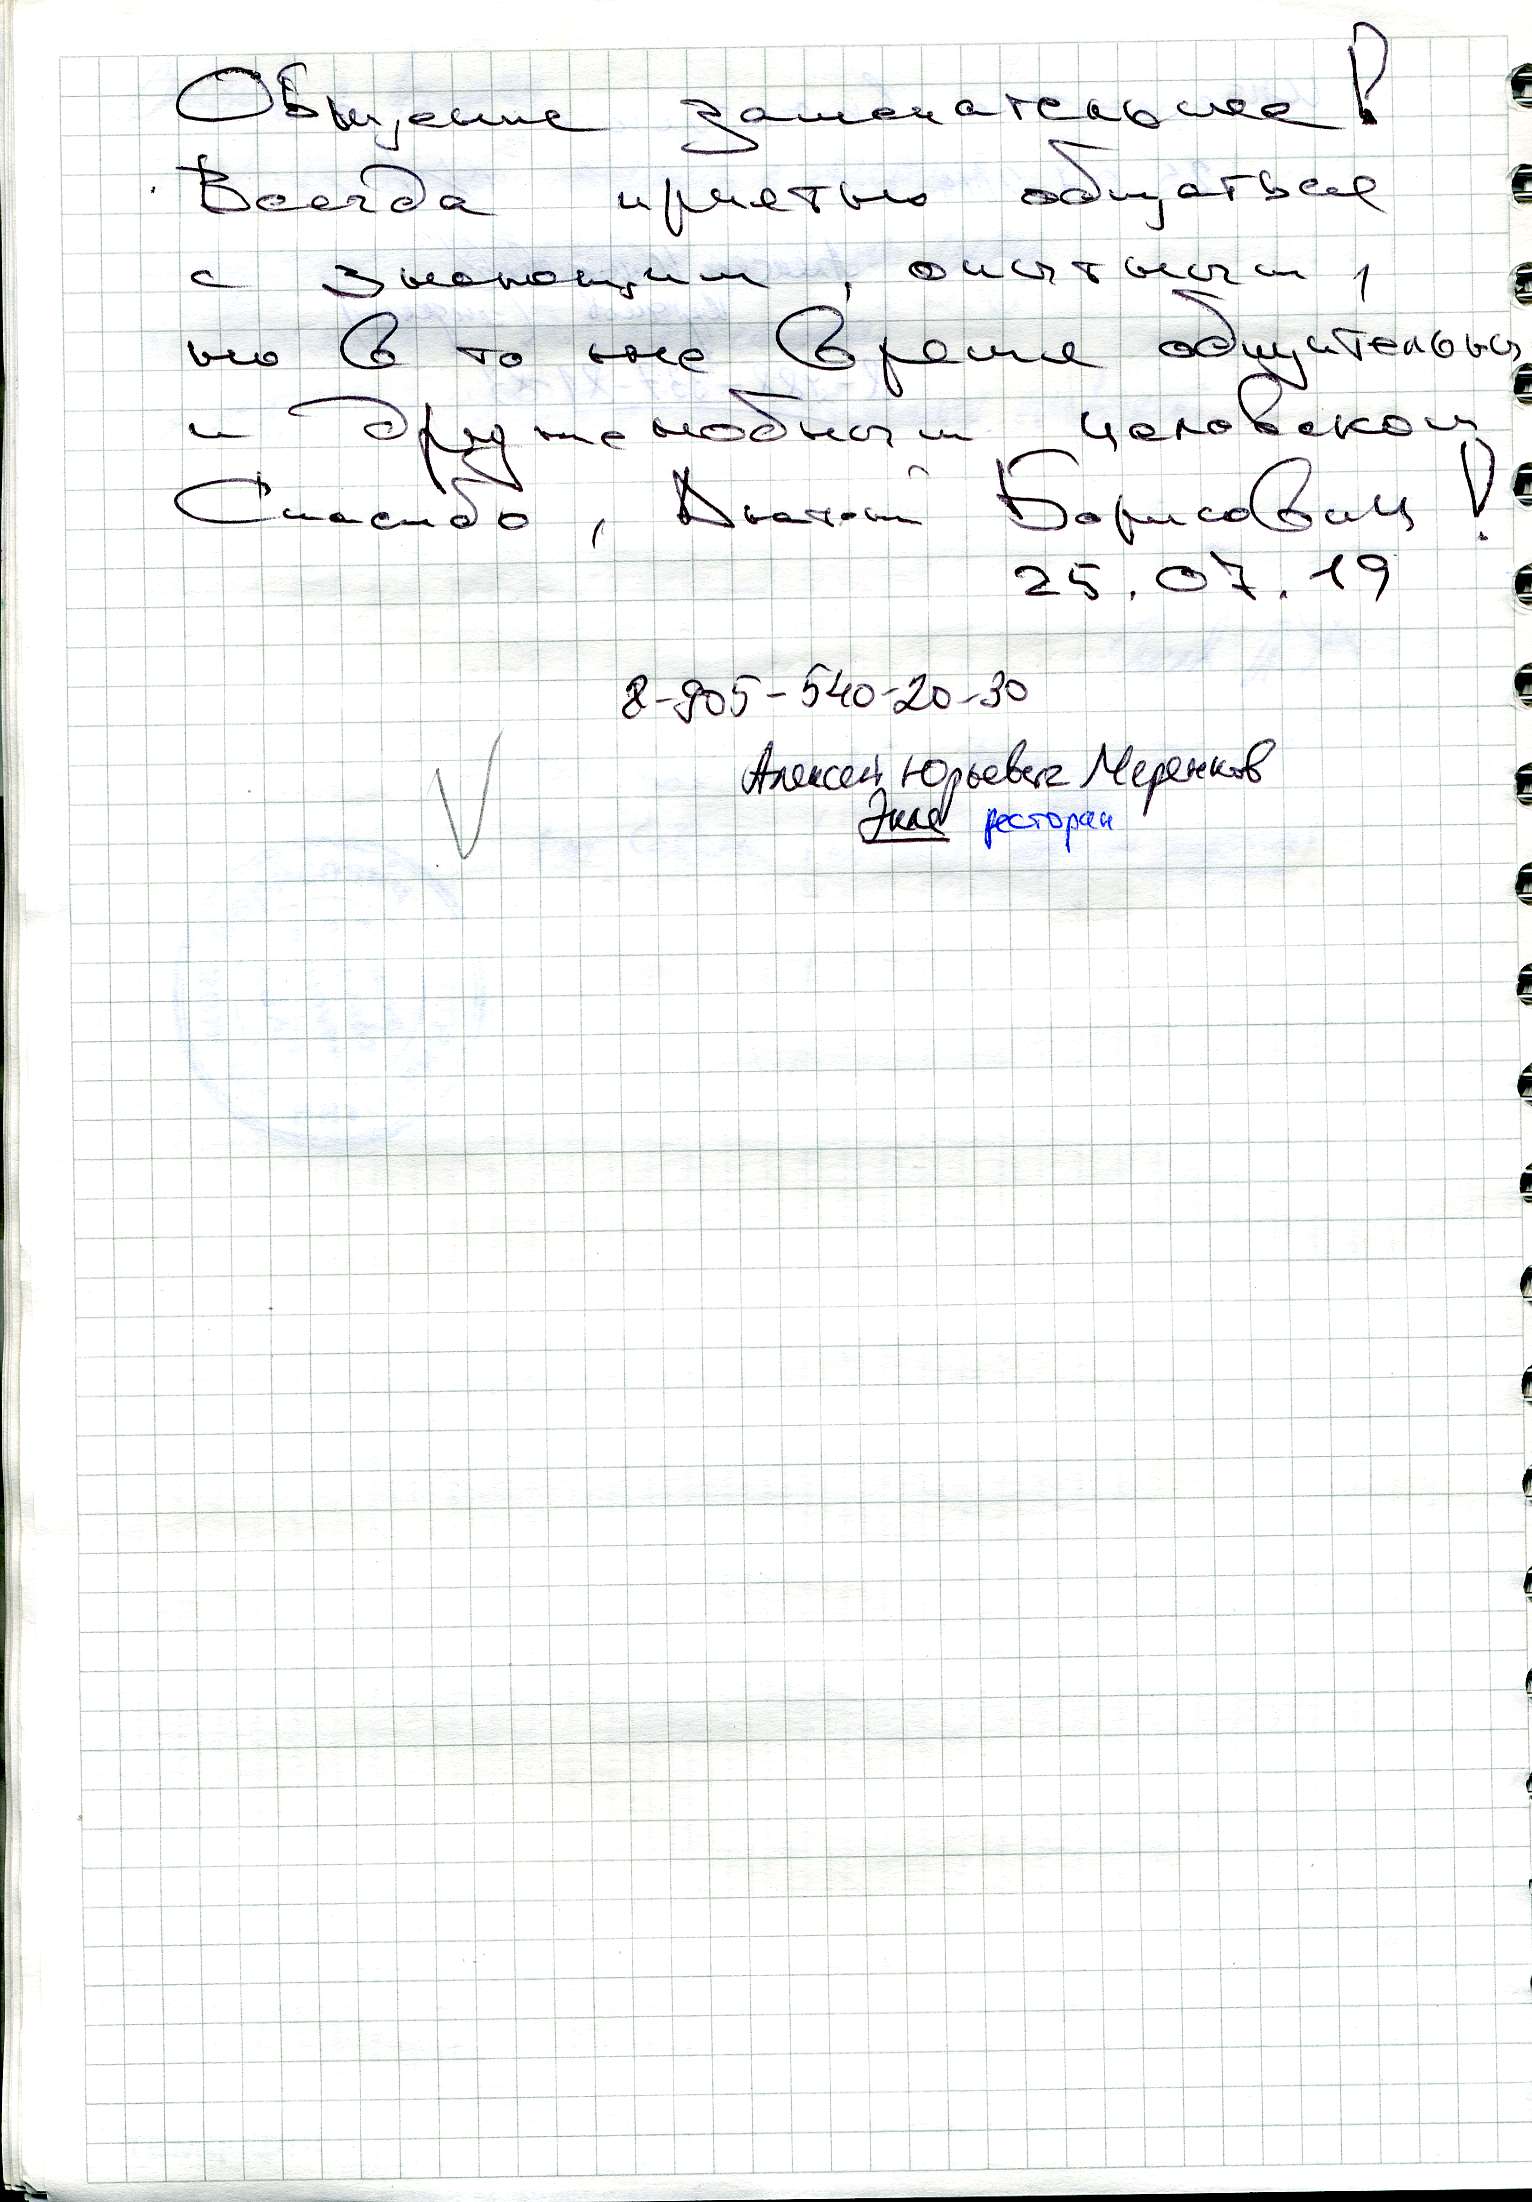 Общение замечательное!
Всегда приятно общаться
с знающим, опытным,
но в то же время общительным
и дружелюбным человеком
Спасибо, Борисович!
25.07.19
8-905-540-20-30
Алексей Юрьевич Меренков
ресторан